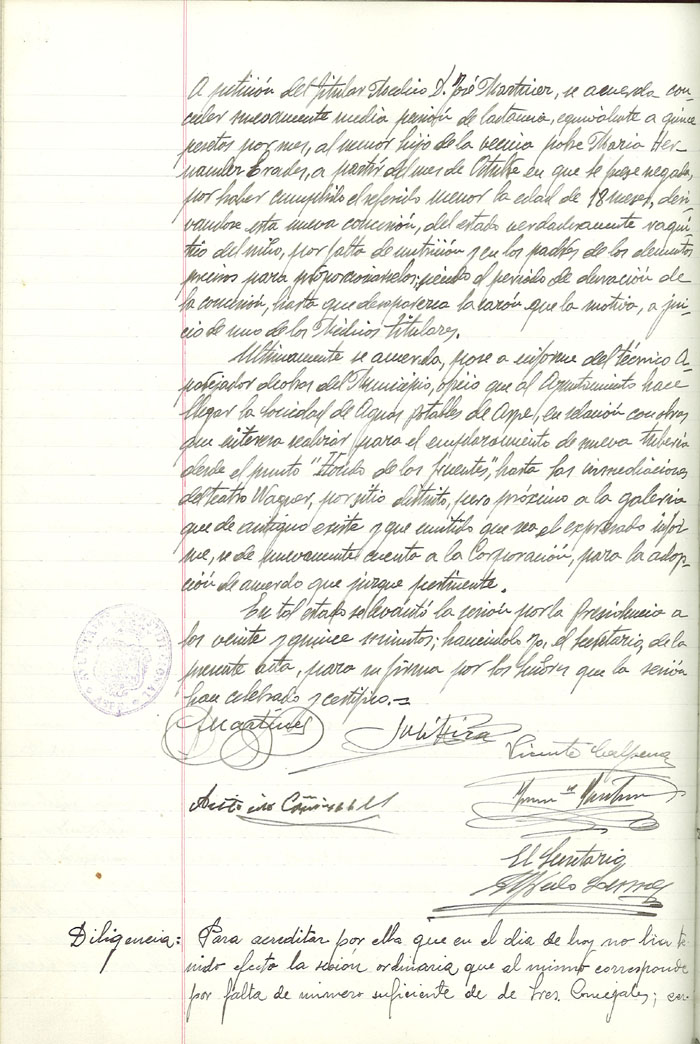 A petición del titular Médico D. José Martínez, se acuerda con-
ceder nuevamente media pensión de lactancia, equivalente a quince
pesetas por mes, al menor hijo de la vecina pobre María Her-
nández Erades, a partir del mes de Octubre en que le fuese negada,
por haber cumplido el referido menor la edad de 18 meses, deri-
vándose esta nueva concesión, del estado verdaderamente raquí-
tico del niño, por falta de nutrición y en los padres de los elementos
precisos para proporcionárselos; siendo el período de duración de
la concesión, hasta que desaparezca la razón que la motiva, a jui-
cio de uno de los Médicos titulares.
Ultimamente se acuerda, pase a informe del técnico A-
parejador de obras del Municipio, oficio que al Ayuntamiento hace
llegar la Sociedad de Aguas potables de Aspe, en relación con obras
que interesa realizar para el emplazamiento de nueva tubería
desde el punto "Hondo de las fuentes", hasta las inmediaciones
del teatro Wagner, por sitio distinto, pero próximo a la galería
que de antiguo existe y que emitido que sea el expresado infor-
me, se de nuevamente cuenta a la Corporación, para la adop-
ción de acuerdo que juzgue pertinente.
En tal estado se levantó la sesión por la Presidencia a
las veinte y quince minutos; haciéndolo yo, el secretario, de la
presente acta, para su firma por los Señores que la sesión
han celebrado y certifico.=
Martínez
Vicente Calpena
Antonio Cañizares
El Secretario
Diligencia: Para acreditar por ella que en el dia de hoy no ha te-
nido efecto la sesión ordinaria que al mismo corresponde
por falta de número suficiente de de Sres. Concejales; cer-